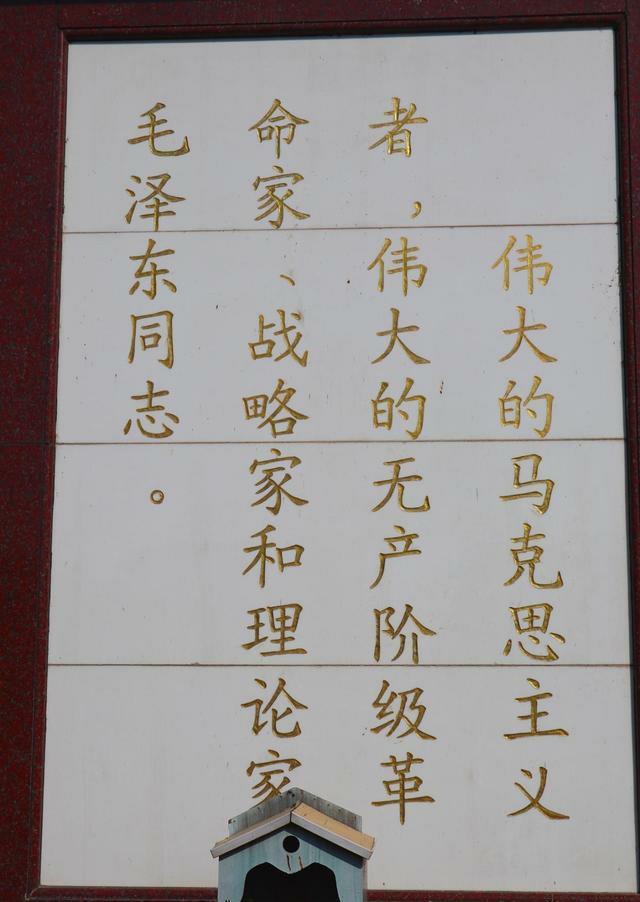 伟大的马克思主义
者，伟大的无产阶级革
命家、战略家和理论家
毛泽东同志。